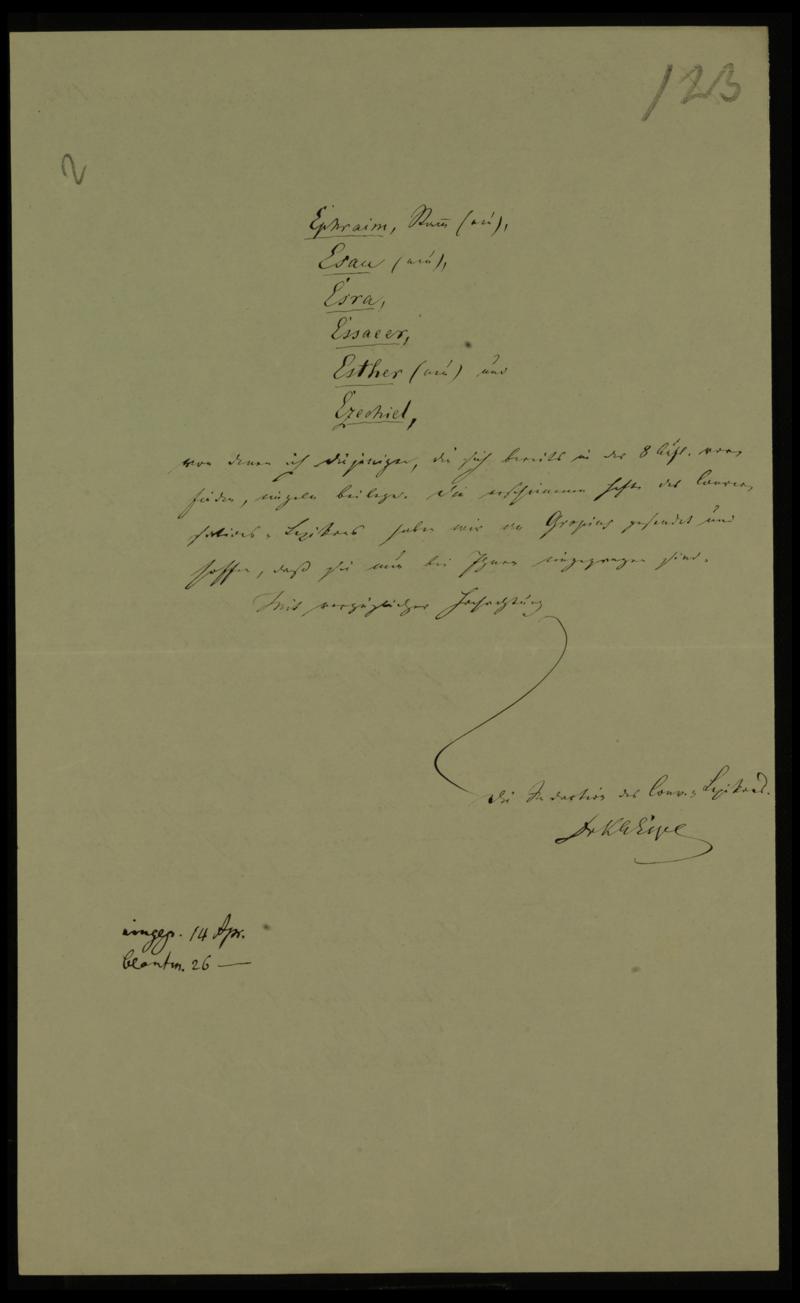 123
2
Ephraim, Stam̅ (neu),
Esau (neu),
Esra,
Essaeer,
Esther (neu) und
Ezechiel,
von denen ich diejenigen, die sich bereits in der 8 Aufl. vor-
finden, einzeln beilege. Die erschienenen Hefte des Conver-
sations-Lexikons haben wir an Gropius gesendet und
hoffen, daß sie nun bei Ihnen eingegangen sind.
Mit vorzüglicher Hochachtung
Die Redaction des Conv.-Lexikons.
Dr K
eingeg. 14 Apr.
beantw. 26 —